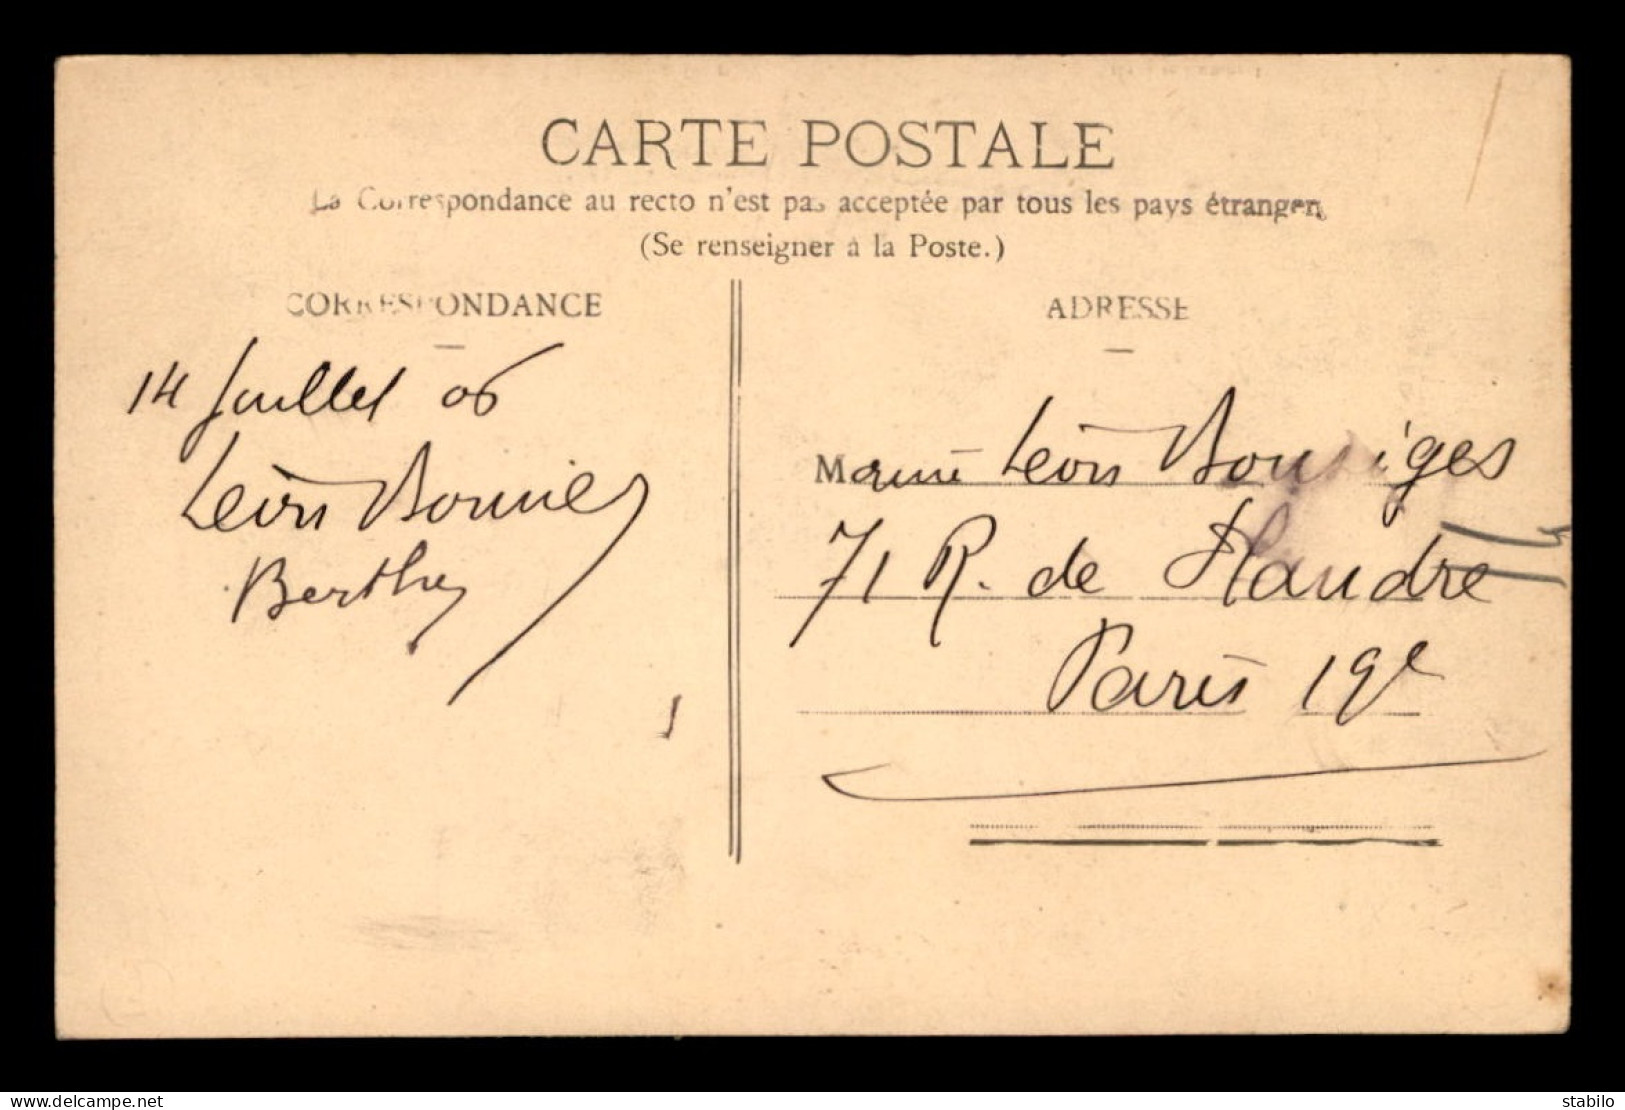 CARTE POSTALE
La Correspondance au recto n'est pas acceptée par tous les pays étrangers
(Se renseigner à la Poste.)
CORRESPONDANCE
14 Juillet 06
Léon
Berthe
ADRESSE
Léon
71 R. de Flandre
Paris 19e
www.delcampe.net
stabilo